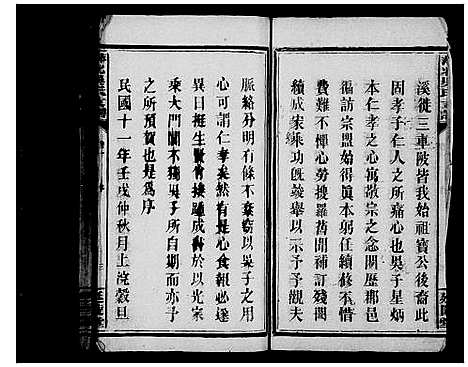 溪徙三車陂皆我始祖寶公後裔此
固孝子仁人之所痛心也吳子星炳
本仁孝之心寓敬宗之念閱歷郡邑
徧訪宗盟始得眞本躬任續修不惜
費難不憚心勞搜羅舊聞補訂殘闕
績成家乘功旣竣舉以示予予觀夫
脈絡分明有倫有要竊以吳子之用
心可謂仁孝矣然有是心食報必遂
異日挺生賢裔接踵成名於以光家
乘大門閭不獨吳子所自期而亦予
之所厚望也是爲序
民國十一年壬戌仲秋月上浣穀旦